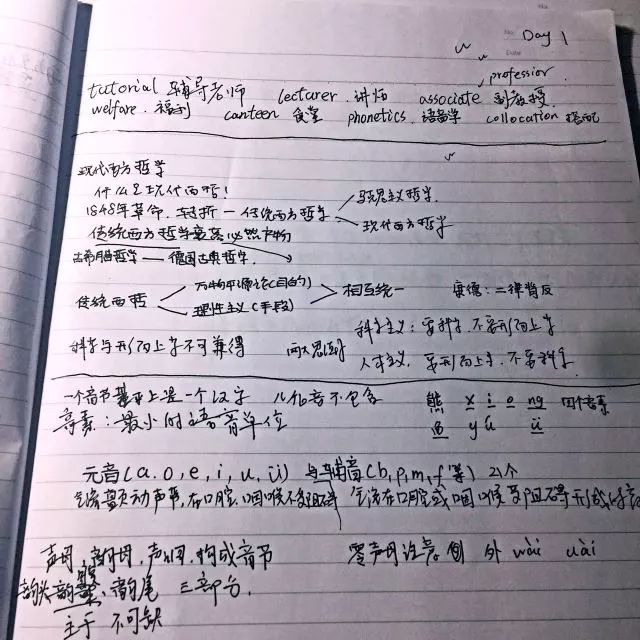 No.
Date
Day 1
professior
tutorial 辅导老师 lecturer 讲师 associate 副教授
welfare 福利 canteen 食堂 phonetics 语音学 collocation 搭配
现代西方哲学
什么是现代西哲!
1848年革命 转折 — 传统西方哲学 马克思主义哲学
现代西方哲学
传统西方哲学衰落必然
古希腊哲学 — 德国古典哲学
传统西哲 万物本源论(目的) 相互统一 康德:二律背反
理性主义(手段)
科学主义:要科学,不要形而上学
科学与形而上学不可兼得 两大思潮
人本主义,要形而上学,不要科学
一个音节基本上是一个汉字 儿化音不包含 熊 x i o ng 四个音素
音素:最小的语音单位 鱼 yú ü
元音(a,o,e,i,u,ü) 与辅音(b,p,m,f等) 21个
气流颤动声带,在口腔、咽喉不受阻碍 气流在口腔或咽喉受阻碍形成的音
声母,韵母,声调,构成音节 零声母 注意 例 外 wài uài
韵头 韵腹、韵尾 三部分
主干 不可缺